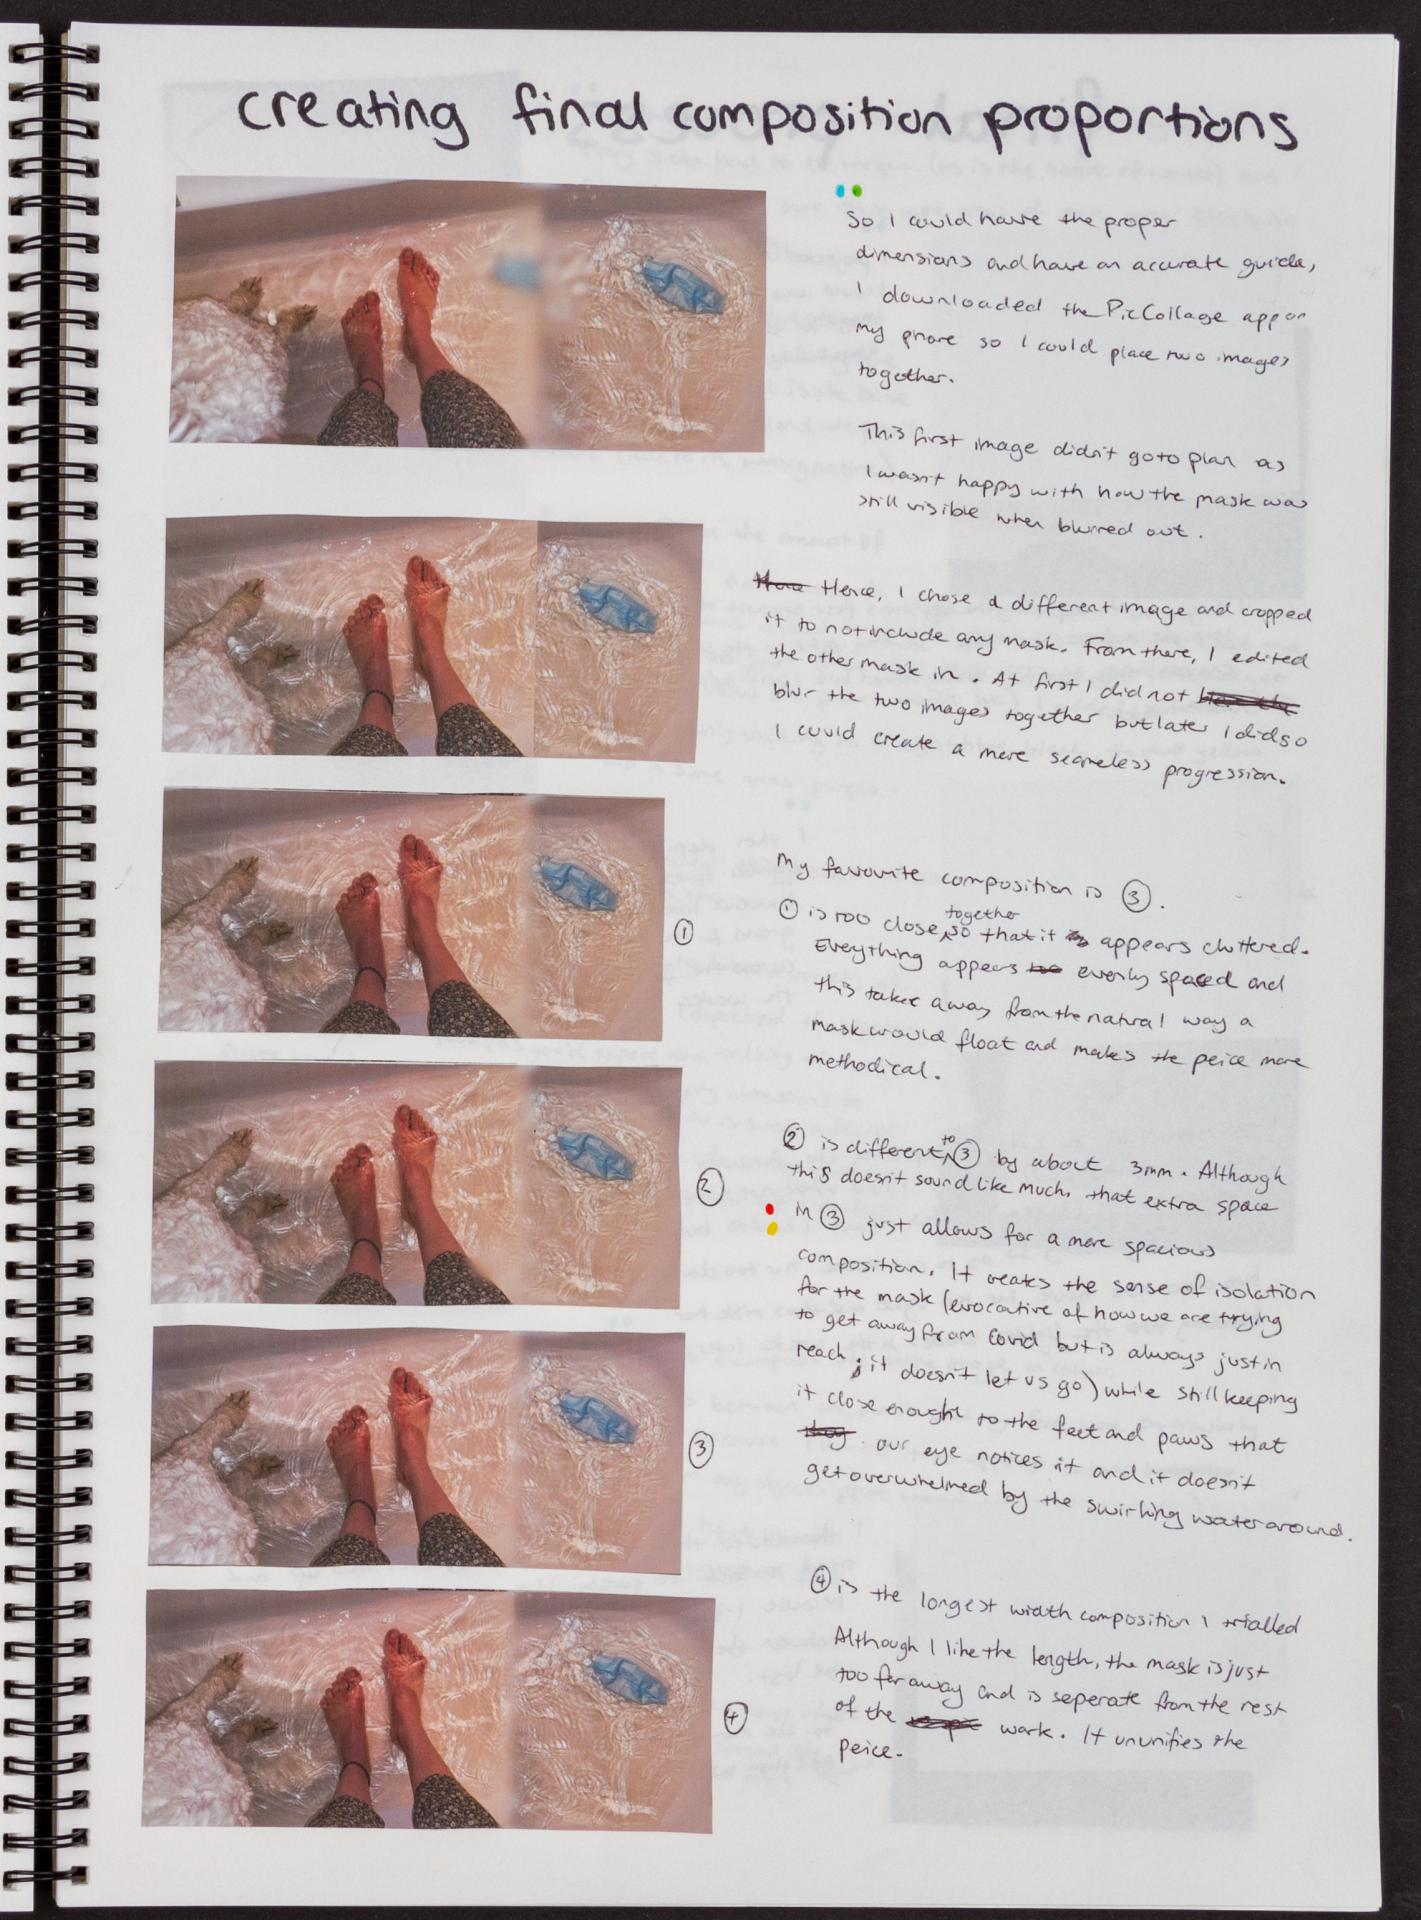 creating final composition proportions
So I could have the proper
dimensions and have an accurate guide,
I downloaded the PicCollage app on
my phone so I could place two images
together.
This first image didn't go to plan as
I wasn't happy with how the mask was
still visible when blurred out.
Hence, I chose a different image and cropped
it to not include any mask. From there, I edited
the other mask in. At first I did not
blur the two images together but later I did so
I could create a more seamless progression.
My favourite composition is ③.
① is too close together so that it appears cluttered.
Everything appears evenly spaced and
this takes away from the natural way a
mask would float and makes the peice more
methodical.
①
② is different to ③ by about 3mm. Although
this doesn't sound like much, that extra space
in ③ just allows for a more spacious
composition. It creates the sense of isolation
for the mask (evocative of how we are trying
to get away from Covid but is always just in
reach; it doesn't let us go) while still keeping
it close enough to the feet and paws that
our eye notices it and it doesn't
get overwhelmed by the swirling water around.
②
③
④ is the longest width composition I trialled
Although I like the length, the mask is just
too far away and is seperate from the rest
of the work. It ununifies the
peice.
④